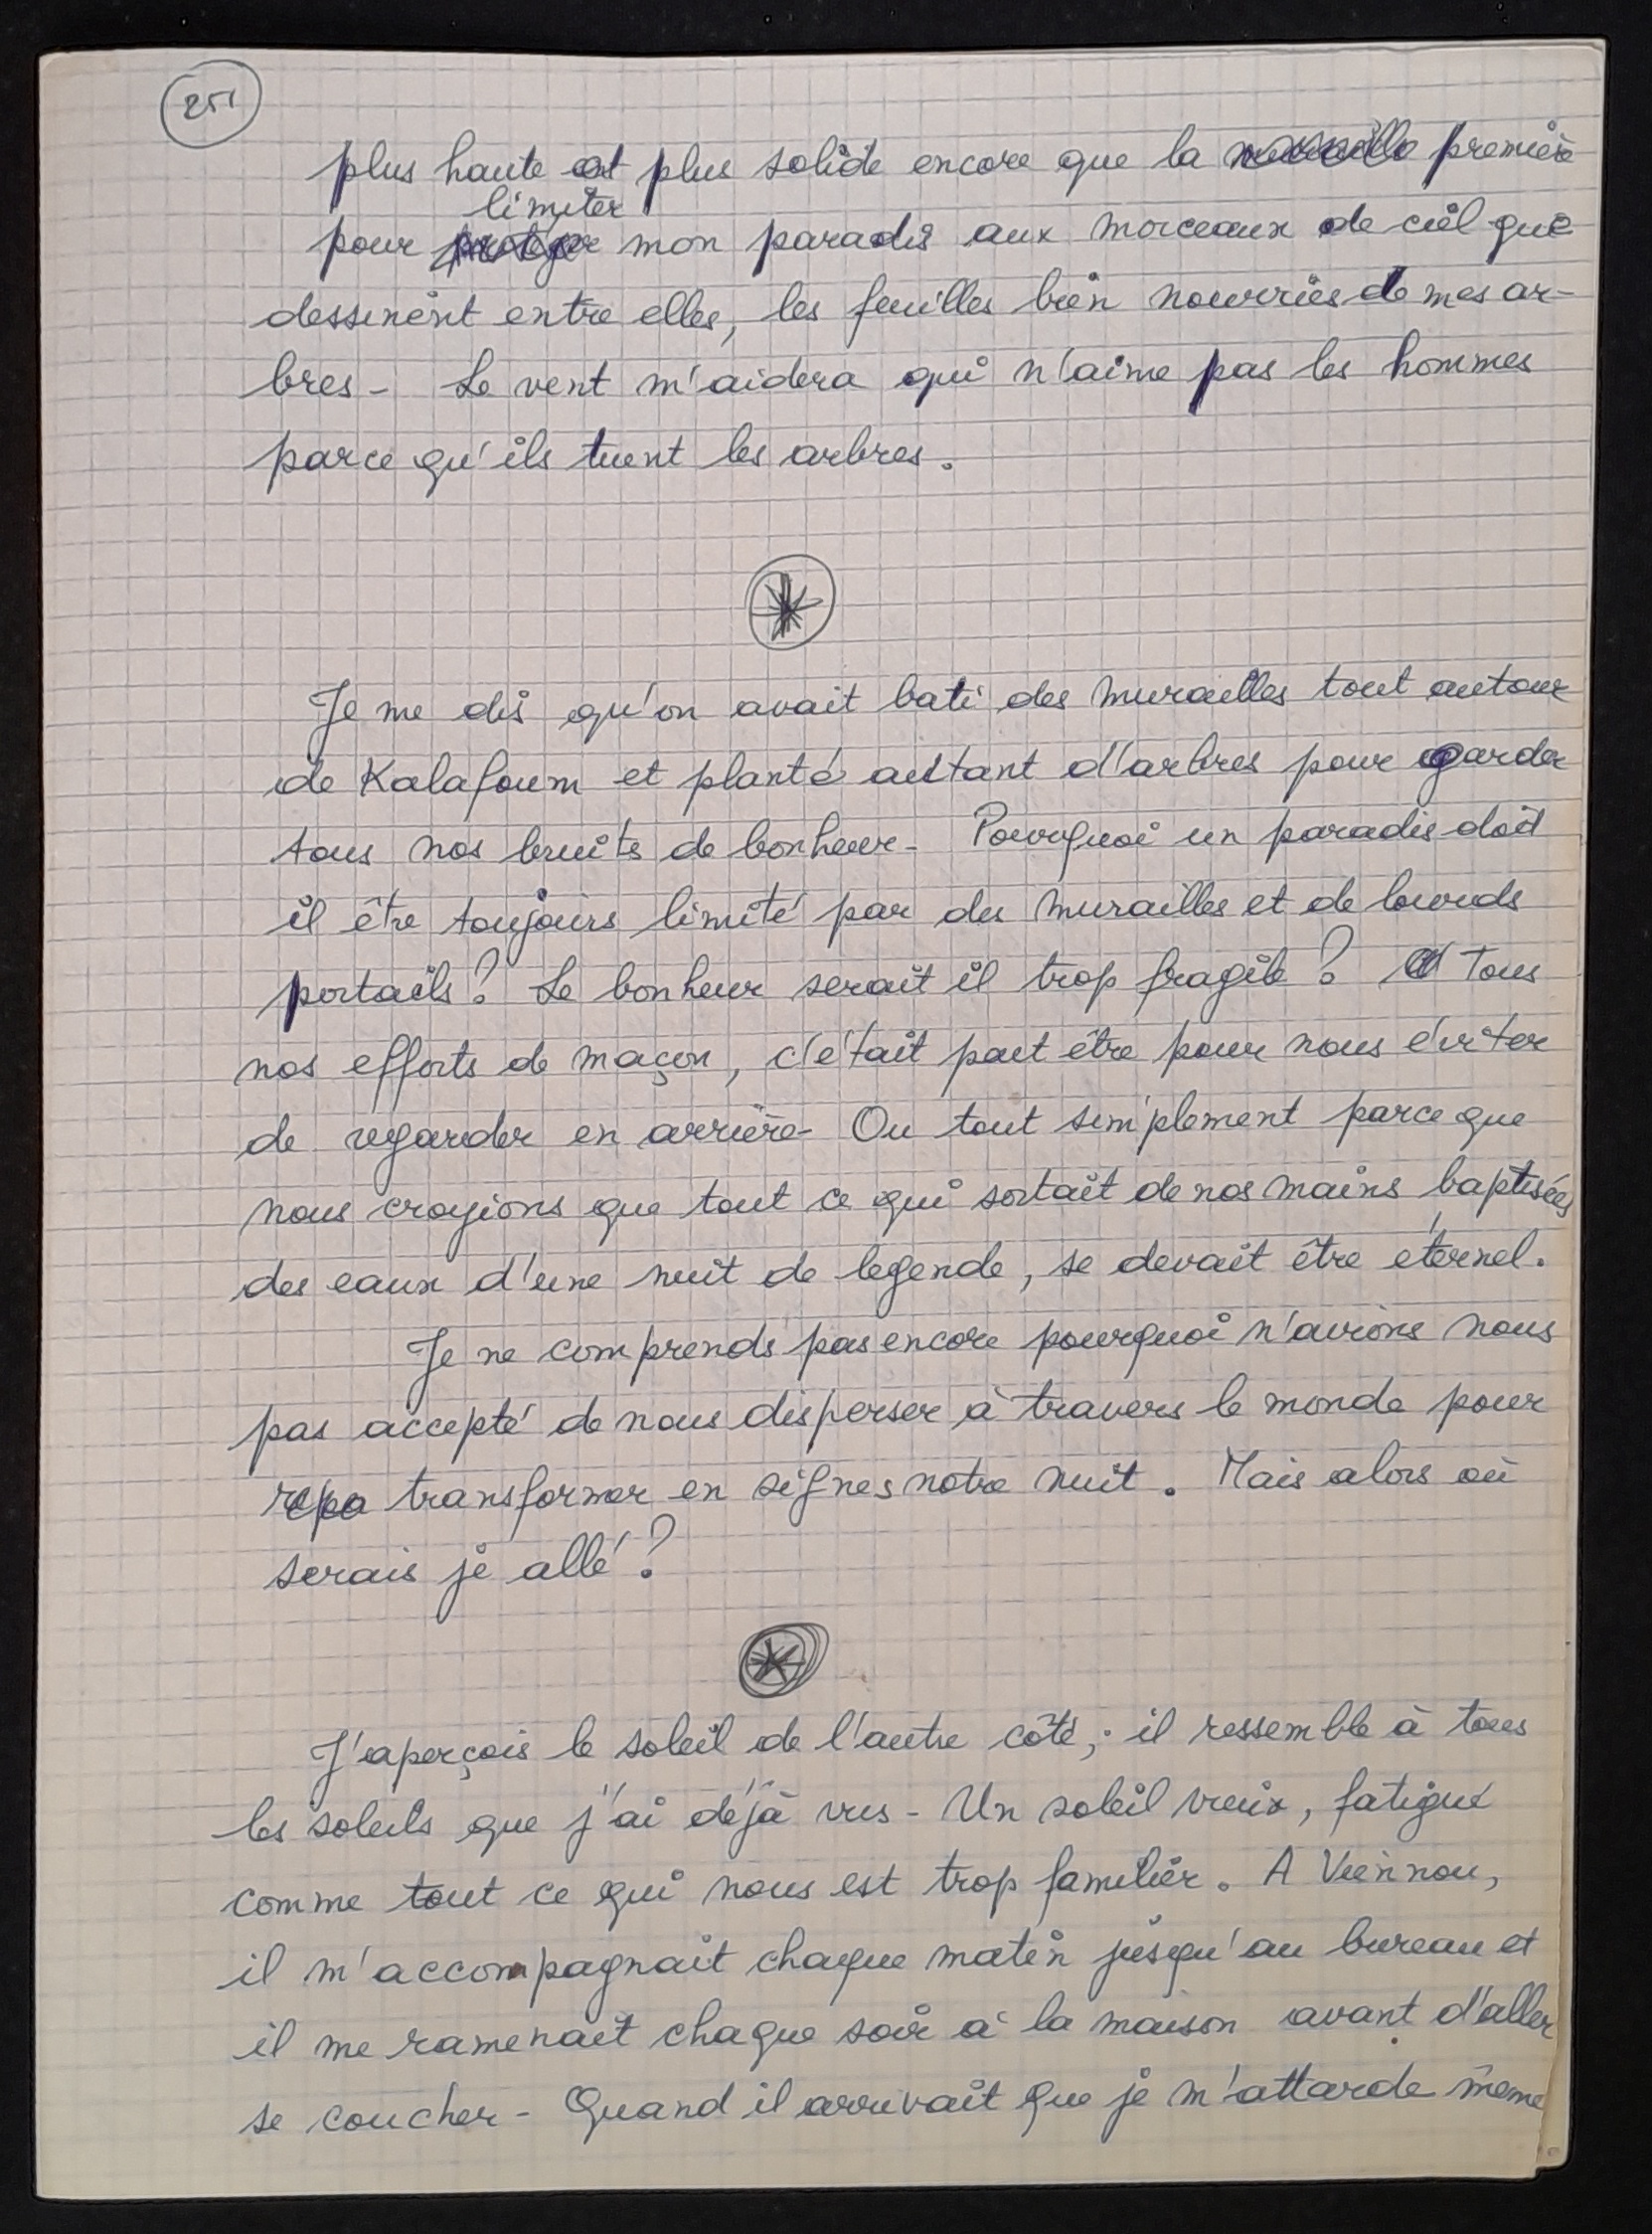 251
plus haute et plus solide encore que la muraille première
limiter
pour protéger mon paradis aux morceaux de ciel que
dessinent entre elles, les feuilles bien nourries de mes ar-
bres - Le vent m'aidera qui n'aime pas les hommes
parce qu'ils tuent les arbres.
Je me dis qu'on avait bati des murailles tout autour
de Kalafoum et planté autant d'arbres pour garder
tous nos bruits de bonheur - Pourquoi un paradis doit
il être toujours limité par des murailles et de lourds
portails ? Le bonheur serait il trop fragile ? Tous
nos efforts de maçon, c'était peut être pour nous éviter
de regarder en arrière - Ou tout simplement parce que
nous croyions que tout ce qui sortait de nos mains baptisées
des eaux d'une nuit de légende, se devait être éternel.
Je ne comprends pas encore pourquoi n'avions nous
pas accepté de nous disperser à travers le monde pour
transformer en signes notre nuit. Mais alors où
serais je allé ?
J'aperçois le soleil de l'autre côté ; il ressemble à tous
les soleils que j'ai déjà vus - Un soleil vieux, fatigué
comme tout ce qui nous est trop familier. A Viennou,
il m'accompagnait chaque matin jusqu'au bureau et
il me ramenait chaque soir à la maison avant d'aller
se coucher - Quand il arrivait que je m'attarde même